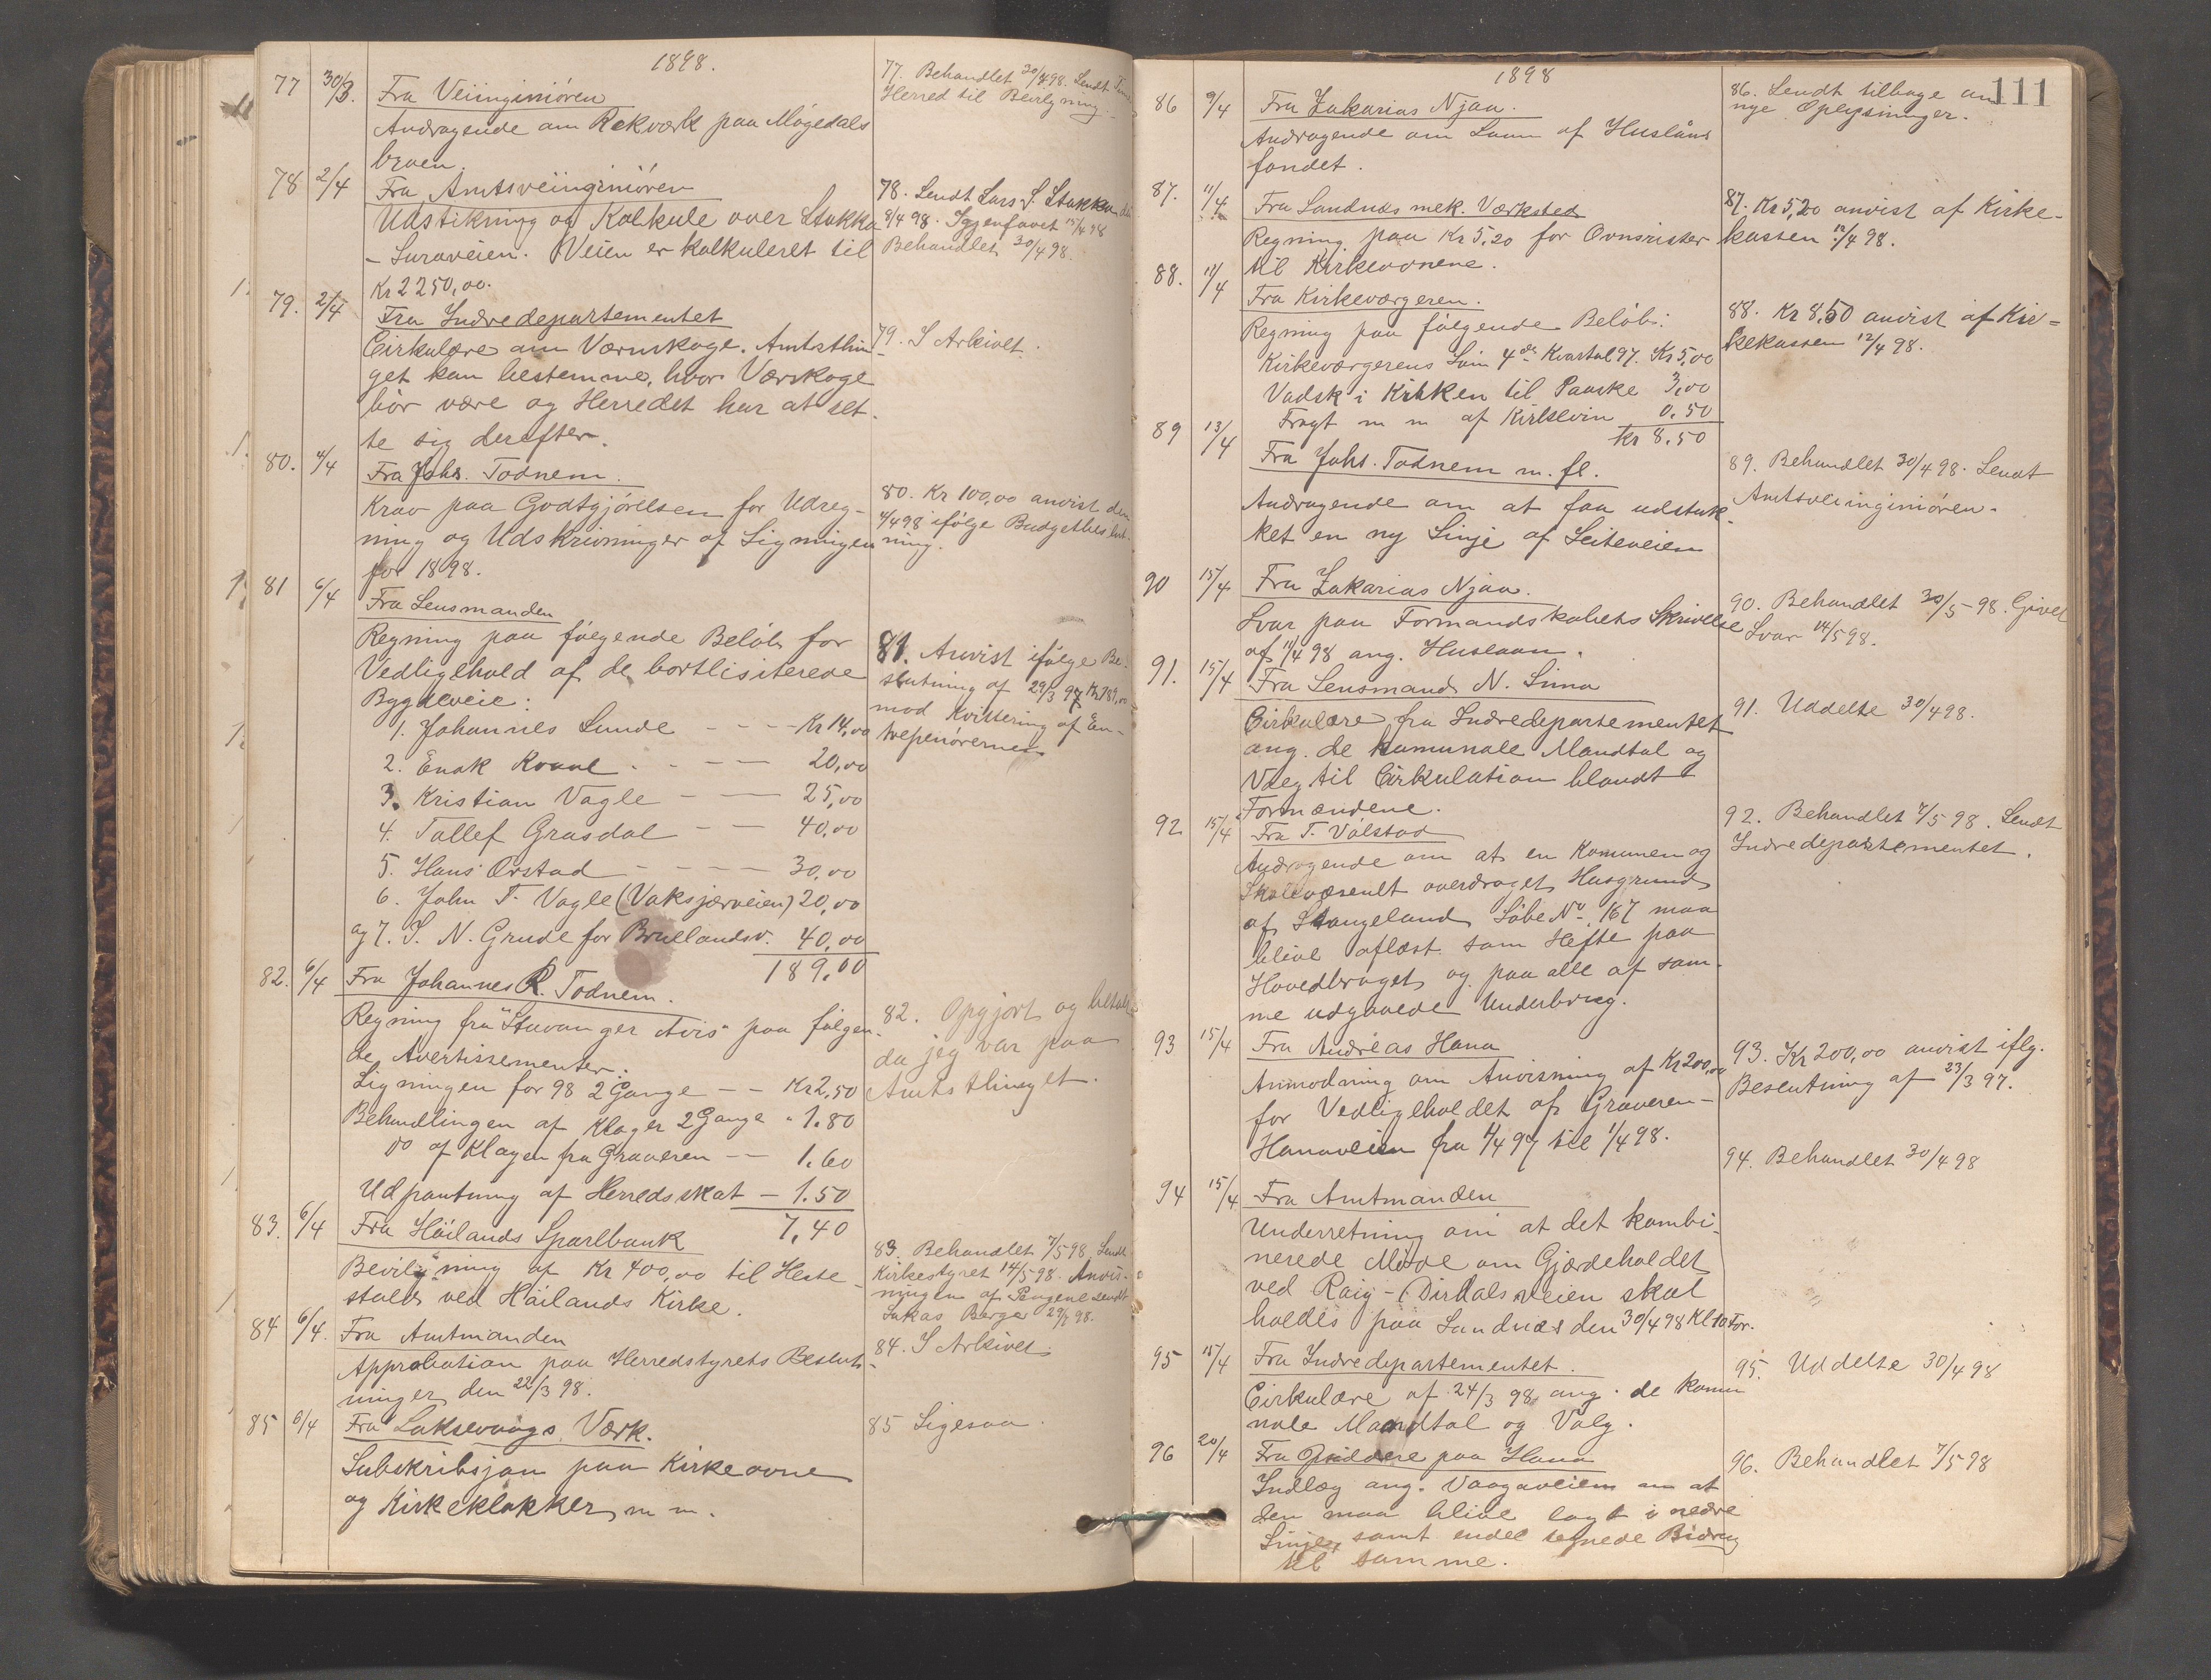 1898.
77 30/3. Fra Veiinginiören
Andragende om Rekværk paa Mågedals
broen.
77. Behandlet 30/4 98. Sendt
Herred til Bevilgning.
78 2/4 Fra Amtsveiinginiören
Udstikning og Kalkule over Stokka
- Suraveien. Veien er kalkuleret til
Kr 2250,00.
78. Sendt Lars S. Stokka
8/4 98. Igjenfaaet 15/4 98
Behandlet 30/4 98.
79. 2/4 Fra Indredepartementet
Cirkulære om Værnskoge. Amtsthin
get kan bestemme, hvor Værskoge
bör være og Herredet har at set-
te sig derefter.
79. I Arkivet.
80. 4/4 Fra Johs. Todnem.
Krav paa Godtgjörelsen for Udreg-
ning og Udskrivninger af Ligningen
for 1898.
80. Kr 100,00 anvist den
4/4 98 ifölge Budgetbeslut-
ning.
81 6/4 Fra Lensmanden
Regning paa fölgende Belöb for
Vedligehold af de bortlisiterede
Bygdeveie:
1. Johannes Lunde - - - Kr 14,00
2. Enok Kvaal - - - - 20,00
3. Kristian Vagle - - - 25,00
4. Tollef Grasdal - - 40,00
5. Hans Orstad - - - - 30,00
6. John T. Vagle (Vaksjærveien) 20,00
og 7. S. N. Grude for Brullandsv. 40,00
189,00
81. Anvist ifölge Be-
slutning af 29/3 97 Kr 189,00
mod Kvittering af En-
trepenörernes
82. 6/4 Fra Johannes R. Todnem.
Regning fra "Stavanger Avis" paa fölgen-
de Avertissementer:
Ligningen for 98 2 Gange - - Kr 2,50
Behandlingen af Klager 2 Gange " 1.80
do af Klagen fra Graveren - - 1.60
Udpantning af Herredsskat - 1.50
7,40
82. Opgjort og betalt
da jeg var paa
Amtsthinget.
83. 6/4 Fra Höilands Sparebank
Bevilgning af Kr 400,00 til Heste-
stalde ved Höilands Kirke.
83. Behandlet 7/5 98. Sendt
Kirkestyret 14/5 98. Anvis-
ningen af Pengene sendt
Lukas Berge 29/ 98.
84 6/4. Fra Amtmanden
Approbation paa Herredstyrets Beslut-
ninger den 22/3 98.
84. I Arkivet
85 6/4 Fra Laksevaags Værk.
Subskribsjon paa Kirkeovne
og Kirkeklokker m m.
85 Ligesaa.
1898
111
86 9/4 Fra Zakarias Njaa.
Andragende om Laan af Huslåns
fondet.
86. Sendt tilbage om
nye Oplysninger.
87. 11/4 Fra Sandnæs mek. Værksted
Regning paa Kr 5,20 for Ovnsrister
til Kirkeovnene.
87. Kr 5,20 anvist af Kirke-
kassen 12/4 98.
88. 11/4 Fra Kirkeværgeren.
Regning paa fölgende Belöb:
Kirkeværgerens Lön 4de Kvartal 97. Kr 5,00
Vadsk i Kirken til Paaske 3,00
Fragt m m af Kirkevin 0.50
Kr 8.50
88. Kr 8,50 anvist af Kir-
kekassen 12/4 98.
89 13/4 Fra Johs. Todnem m. fl.
Andragende om at faa udstuk-
ket en ny Linje af Leiteveien
89. Behandlet 30/4 98. Sendt
Amtsveiinginiören.
90 15/4 Fra Zakarias Njaa.
Svar paa Formandskabets Skrivelse
af 11/4 98 ang. Huslaan.
90. Behandlet 30/5 98. Givet
Svar 14/5 98.
91. 15/4 Fra Lensmand N. Lima
Cirkulære fra Indredepartementet
ang. de komunale Mandtal og
Valg til Cirkulation blandt
Formændene.
91. Uddelte 30/4 98.
92 15/4 Fra T. Völstad
Andragende om at en Komunen og
Skolevæsenlt overdraget Husgrund
af Stangeland Löbe No 167 maa
blive aflæst som Hefte paa
Hovedbruget og paa alle af sam-
me udgaaede Underbrug.
92. Behandlet 7/5 98. Sendt
Indredepartementet.
93 15/4 Fra Andreas Hana
Anmodning om Anvisning af Kr 200,00
for Vedligeholdet af Graveren-
Hanaveien fra 1/4 97 til 1/4 98.
93. Kr 200,00 anvist iflg.
Beslutning af 23/3 97.
94 15/4 Fra Amtmanden
Underretning om at det kombi-
nerede Möde om Gjædeholdet
ved Raig - Dirdalsveien skal
holdes paa Sandnæs den 30/4 98 Kl 10 For.
94. Behandlet 30/4 98
95 15/4 Fra Indredepartementet.
Cirkulære af 24/3 98 ang. de komu
nale Mandtal og Valg.
95. Uddelte 30/4 98
96 20/4 Fra Opsiddere paa Hana
Indlæg ang. Vaagaveien om at
den maa blive lagt i nedre
Linje, samt endel tegnede Bidrag
til samme.
96. Behandlet 7/5 98